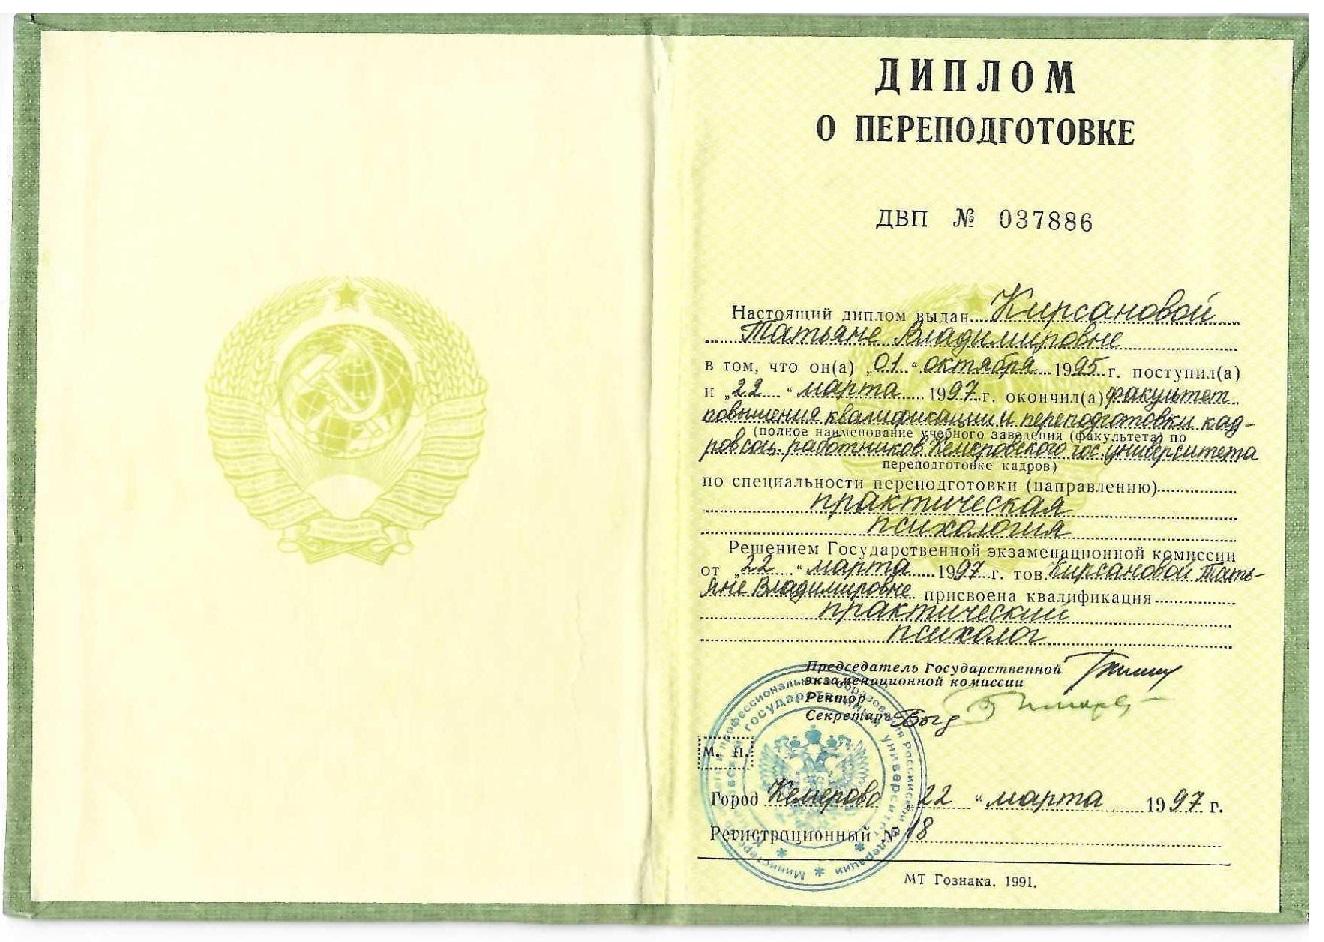 ДИПЛОМ
О ПЕРЕПОДГОТОВКЕ
ДВП № 037886
Настоящий диплом выдан Кирсановой
Татьяне Владимировне
в том, что он(а) „01" октября 1995 г. поступил(а)
и „22" марта 1997 г. окончил(а) факультет
повышения квалификации и переподготовки кад-
(полное наименование учебного заведения (факультета) по
ров соц. работников Кемеровского гос. университета
переподготовке кадров)
по специальности переподготовки (направлению)
практическая
психология
Решением Государственной экзаменационной комиссии
от „22" марта 1997 г. тов. Кирсановой Тать-
яне Владимировне присвоена квалификация
практический
психолог
Председатель Государственной
экзаменационной комиссии
Ректор
Секретарь
М. П.
Город Кемерово 22 " марта 1997 г.
Регистрационный № 18
МТ Гознака. 1991.